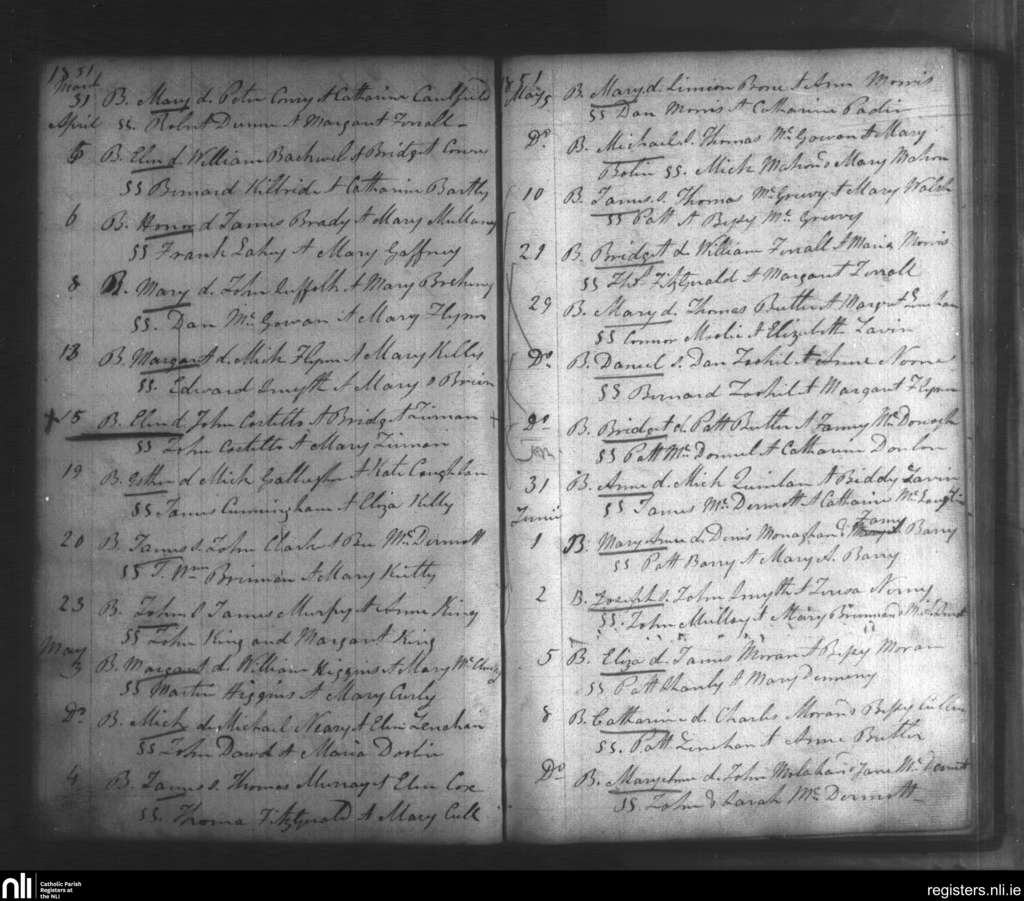 1851
March
31 B. Mary d. Peter Conry & Catharine Caulfield
April SS. Robert Dunne & Margaret Forrall
5 B. Elin d. William Backwel & Bridget
SS Bernard Kilbride & Catharine Bartly
6 B. Honor d James Brady & Mary Mullany
SS Frank Lahey & Mary Gaffney
8 B. Mary d. John & Mary Breheny
SS. Dan McGowan & Mary Flynn
13 B Margaret d. Mick Flynn & Mary Kelly
SS. Edward Smyth & Mary O Brien
+ 15 B. Elin d. John Costillo & Bridget Tiernan +
SS John Costillo & Mary Tiernan
19 B. Esther d Mick Gallagher & Kate Coughlan
SS James Cunningham & Eliza Kelly
20 B. James s. John Clark & Bee McDermott
SS T. Wm Brinnan & Mary Kitty
23 B. John s James Murpey & Anne King
SS John King and Margaret King
May
3 B. Margaret d. William Higgins & Mary
SS Martin Higgins & Mary Curly
Do B. Mick d. Michael Neary & Elin Lenahan
SS John David & Maria Doolin
4 B. James s. Thomas Murray & Elin Cox
SS. Thoma Fitzgerald & Mary Cull
1851
May 5 B. Mary d. Simion Bone & Ann Morris
SS Dan Morris & Catharine Padin
Do B. Michael s. Thomas McGowan & Mary
Bolin SS. Mick Mahon & Mary Mahon
10 B. James s. Thomas McGreevy & Mary Walsh
SS Patt & Bessey McGreevy
21 B. Bridget d. William Forrall & Maria Morris
SS Ths Fitzgerald & Margaret Forrall
29 B. Mary d. Thomas Butler & Margret
SS Connor & Elizabeth Lavin
Do B. Daniel s. Dan & Anne
SS Bernard & Margaret Flynn
Do B. Bridget d. Patt Butler & Fanny McDonagh
SS Patt McDonnel & Catharine Donlon
31 B. Anne d. Mick Quinlan & Biddy Lavin
SS James McDermott & Catharine
June Fanny
1 B. Mary Anne d. Denis Monaghan & Barry
SS Patt Barry & Mary A. Barry
2 B. Joseph s. John Smyth & Teresa
SS. John Mulloy & Mary Brinnan
5 B. Eliza d. James Moran & Bessey Moran
SS Patt Hanly & Mary Denneny
8 B. Catharine d. Charles Moran & Bessy Cullen
SS. Patt Linehan & Anne Butler
Do B. Mary Anne d. John & Jane McDermott
SS. John & Sarah McDermott
nli Catholic Parish
Registers at
the NLI
registers.nli.ie